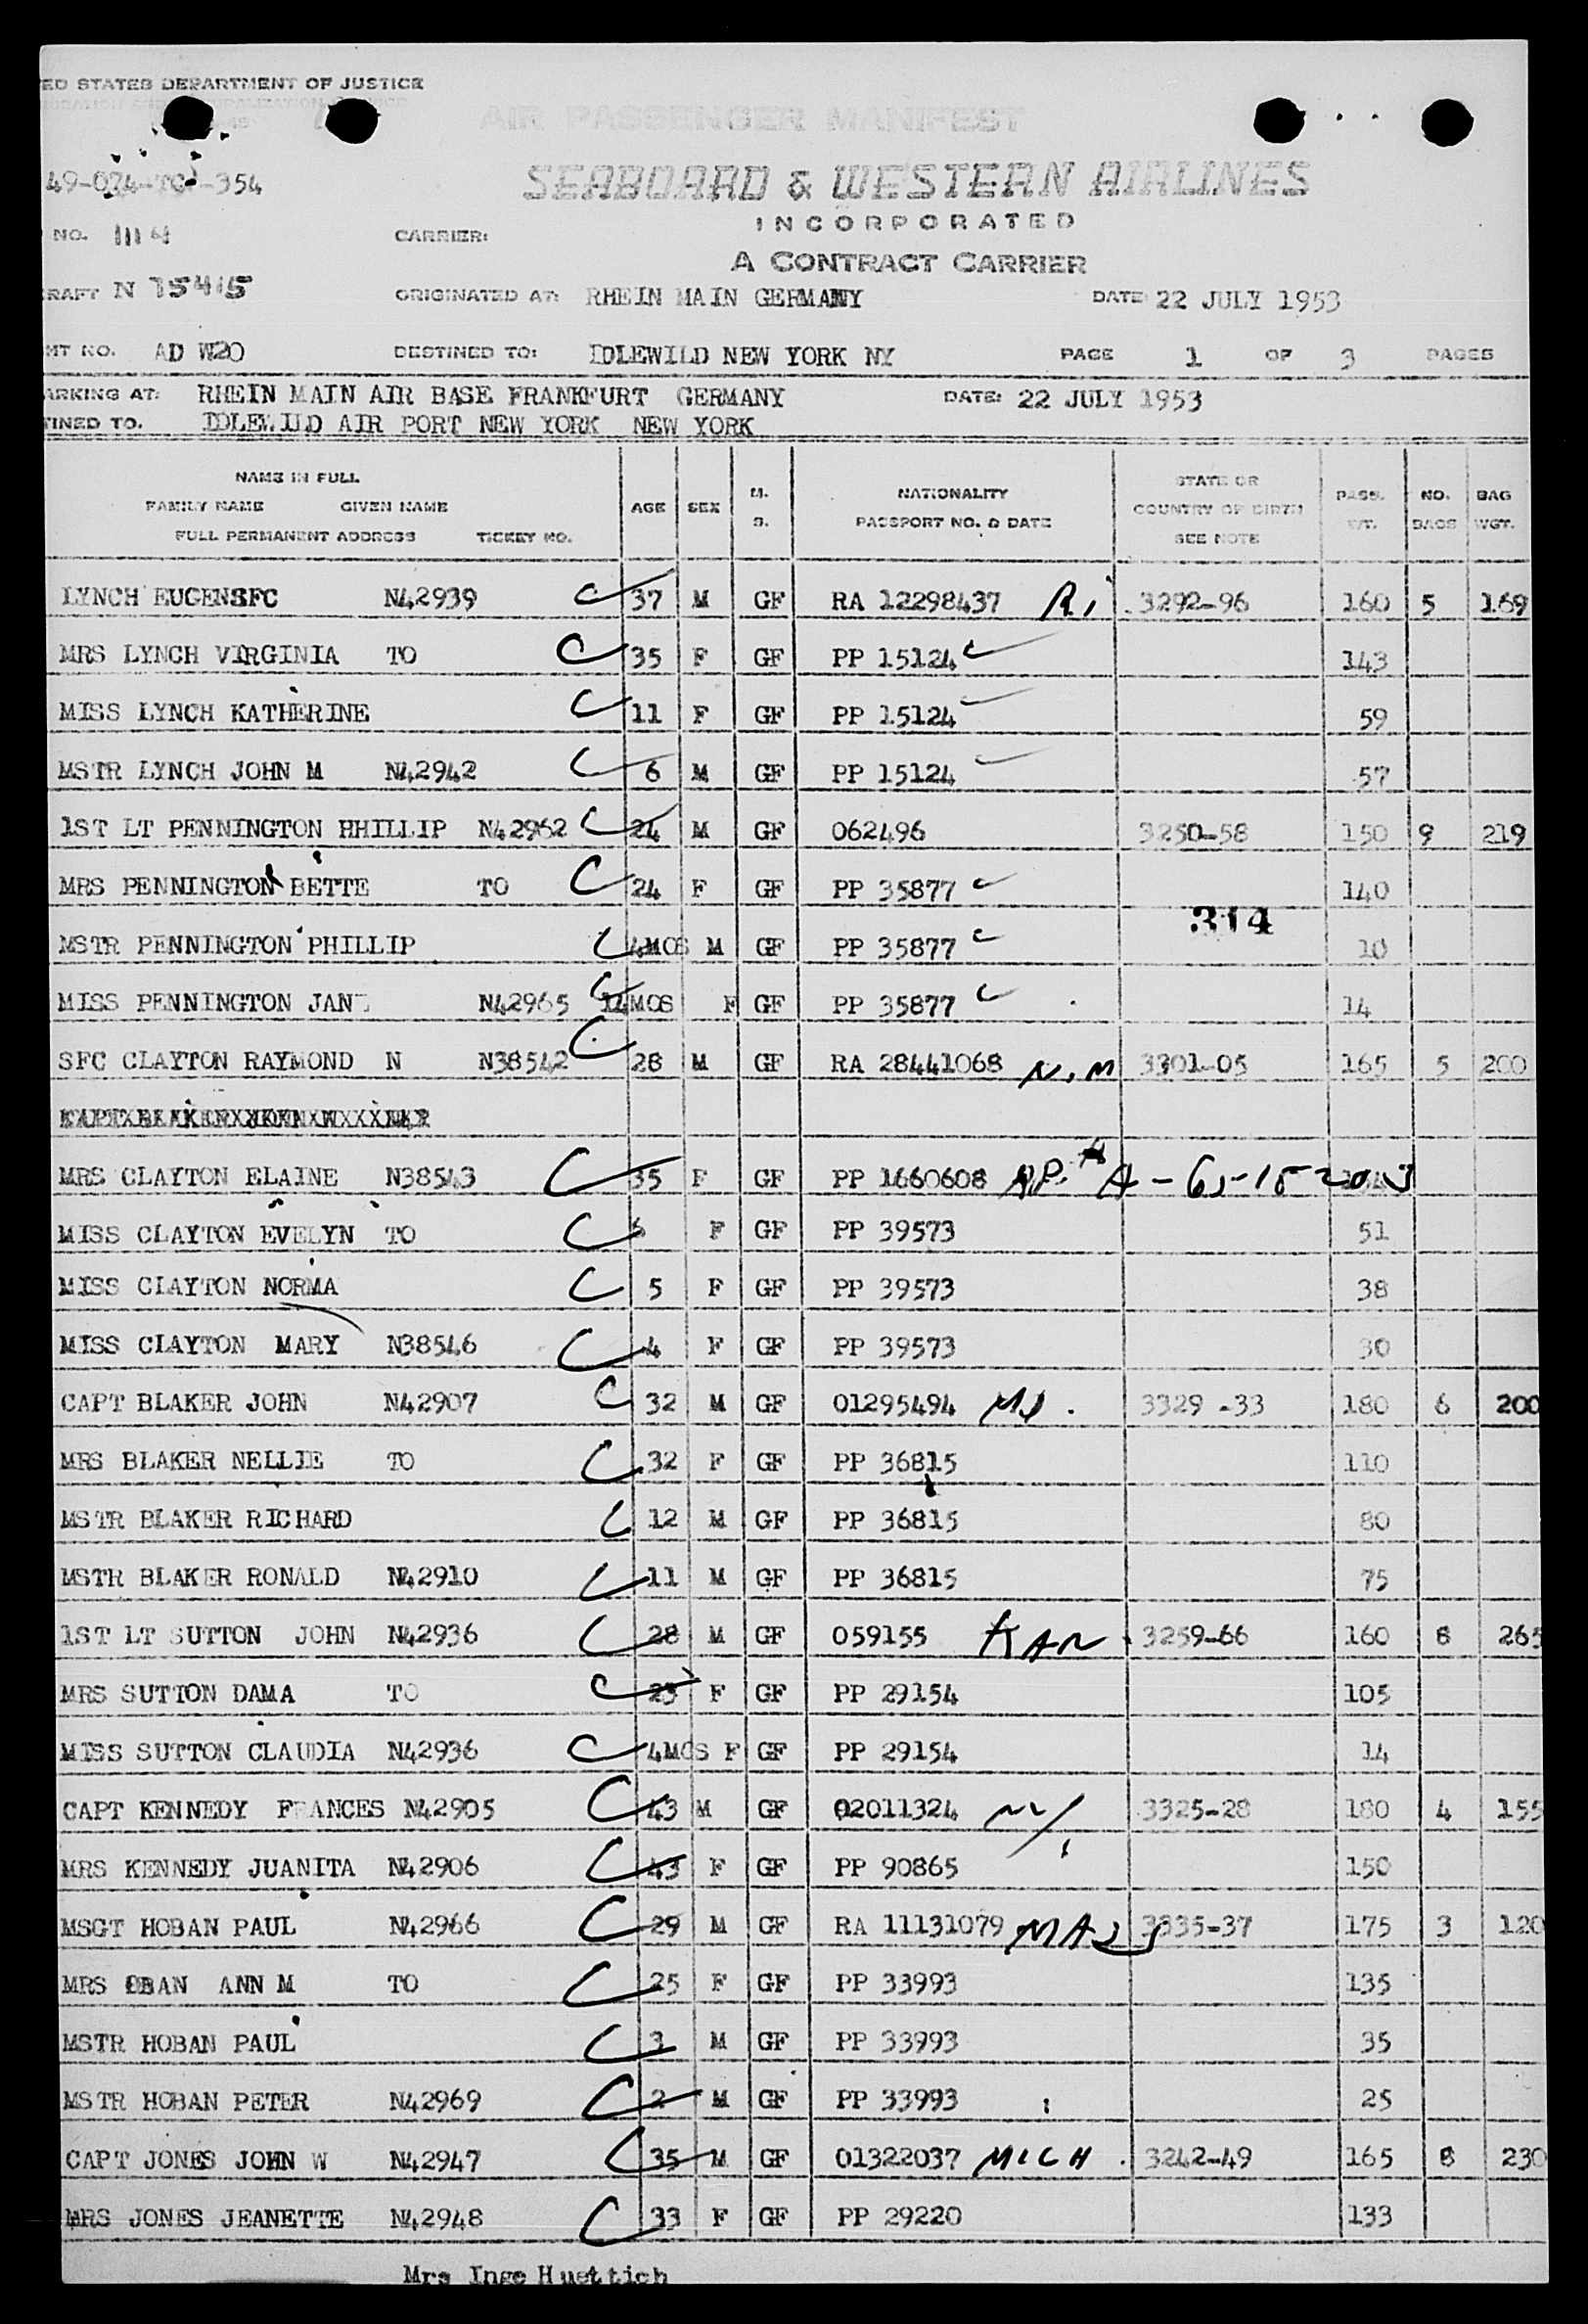 ED STATES DEPARTMENT OF JUSTICE
AIR PASSENGER MANIFEST
49-024-TC-354
SEABOARD & WESTERN AIRLINES
INCORPORATED
NO. 1114 CARRIER:
A CONTRACT CARRIER
RAFT N 75415 ORIGINATED AT: RHEIN MAIN GERMANY DATE 22 JULY 1953
MT NO. AD W20 DESTINED TO: IDLEWILD NEW YORK NY PAGE 1 OF 3 PAGES
ARKING AT: RHEIN MAIN AIR BASE FRANKFURT GERMANY DATE: 22 JULY 1953
TINED TO. IDLEWILD AIR PORT NEW YORK NEW YORK
NAME IN FULL
FAMILY NAME GIVEN NAME
FULL PERMANENT ADDRESS TICKET NO.
AGE SEX M. S. NATIONALITY PASSPORT NO. & DATE STATE OR COUNTRY OF BIRTH SEE NOTE PASS. WT. NO. BAGS BAG WGT.
LYNCH EUGENSFC N42939 C 37 M GF RA 12298437 R.I 3292-96 160 5 169
MRS LYNCH VIRGINIA TO C 35 F GF PP 15124 143
MISS LYNCH KATHERINE C 11 F GF PP 15124 59
MSTR LYNCH JOHN M N42942 C 6 M GF PP 15124 57
1ST LT PENNINGTON HHILLIP N42962 C 24 M GF 062496 3250-58 150 9 219
MRS PENNINGTON BETTE TO C 24 F GF PP 35877 140
314
MSTR PENNINGTON PHILLIP C 4MOS M GF PP 35877 10
MISS PENNINGTON JANE N42965 C 14MOS F GF PP 35877 14
SFC CLAYTON RAYMOND N N38542 C 28 M GF RA 28441068 N.M 3301-05 165 5 200
MRS CLAYTON ELAINE N38543 C 35 F GF PP 1660608
MISS CLAYTON EVELYN TO C 6 F GF PP 39573 51
MISS CLAYTON NORMA C 5 F GF PP 39573 38
MISS CLAYTON MARY N38546 C 4 F GF PP 39573 30
CAPT BLAKER JOHN N42907 C 32 M GF 01295494 3329 -33 180 6 200
MRS BLAKER NELLIE TO C 32 F GF PP 36815 110
MSTR BLAKER RICHARD C 12 M GF PP 36815 80
MSTR BLAKER RONALD N42910 C 11 M GF PP 36815 75
1ST LT SUTTON JOHN N42936 C 28 M GF 059155 KAN. 3259-66 160 8 265
MRS SUTTON DAMA TO C 23 F GF PP 29154 105
MISS SUTTON CLAUDIA N42936 C 4MOS F GF PP 29154 14
CAPT KENNEDY FRANCES N42905 C 43 M GF 02011324 3325-28 180 4 155
MRS KENNEDY JUANITA N42906 C 43 F GF PP 90865 150
MSGT HOBAN PAUL N42966 C 29 M GF RA 11131079 MASS 3335-37 175 3 120
MRS OBAN ANN M TO C 25 F GF PP 33993 135
MSTR HOBAN PAUL C 3 M GF PP 33993 35
MSTR HOBAN PETER N42969 C 2 M GF PP 33993 25
CAPT JONES JOHN W N42947 C 35 M GF 01322037 MICH. 3242-49 165 8 230
MRS JONES JEANETTE N42948 C 33 F GF PP 29220 133
Mrs Inge Huettich